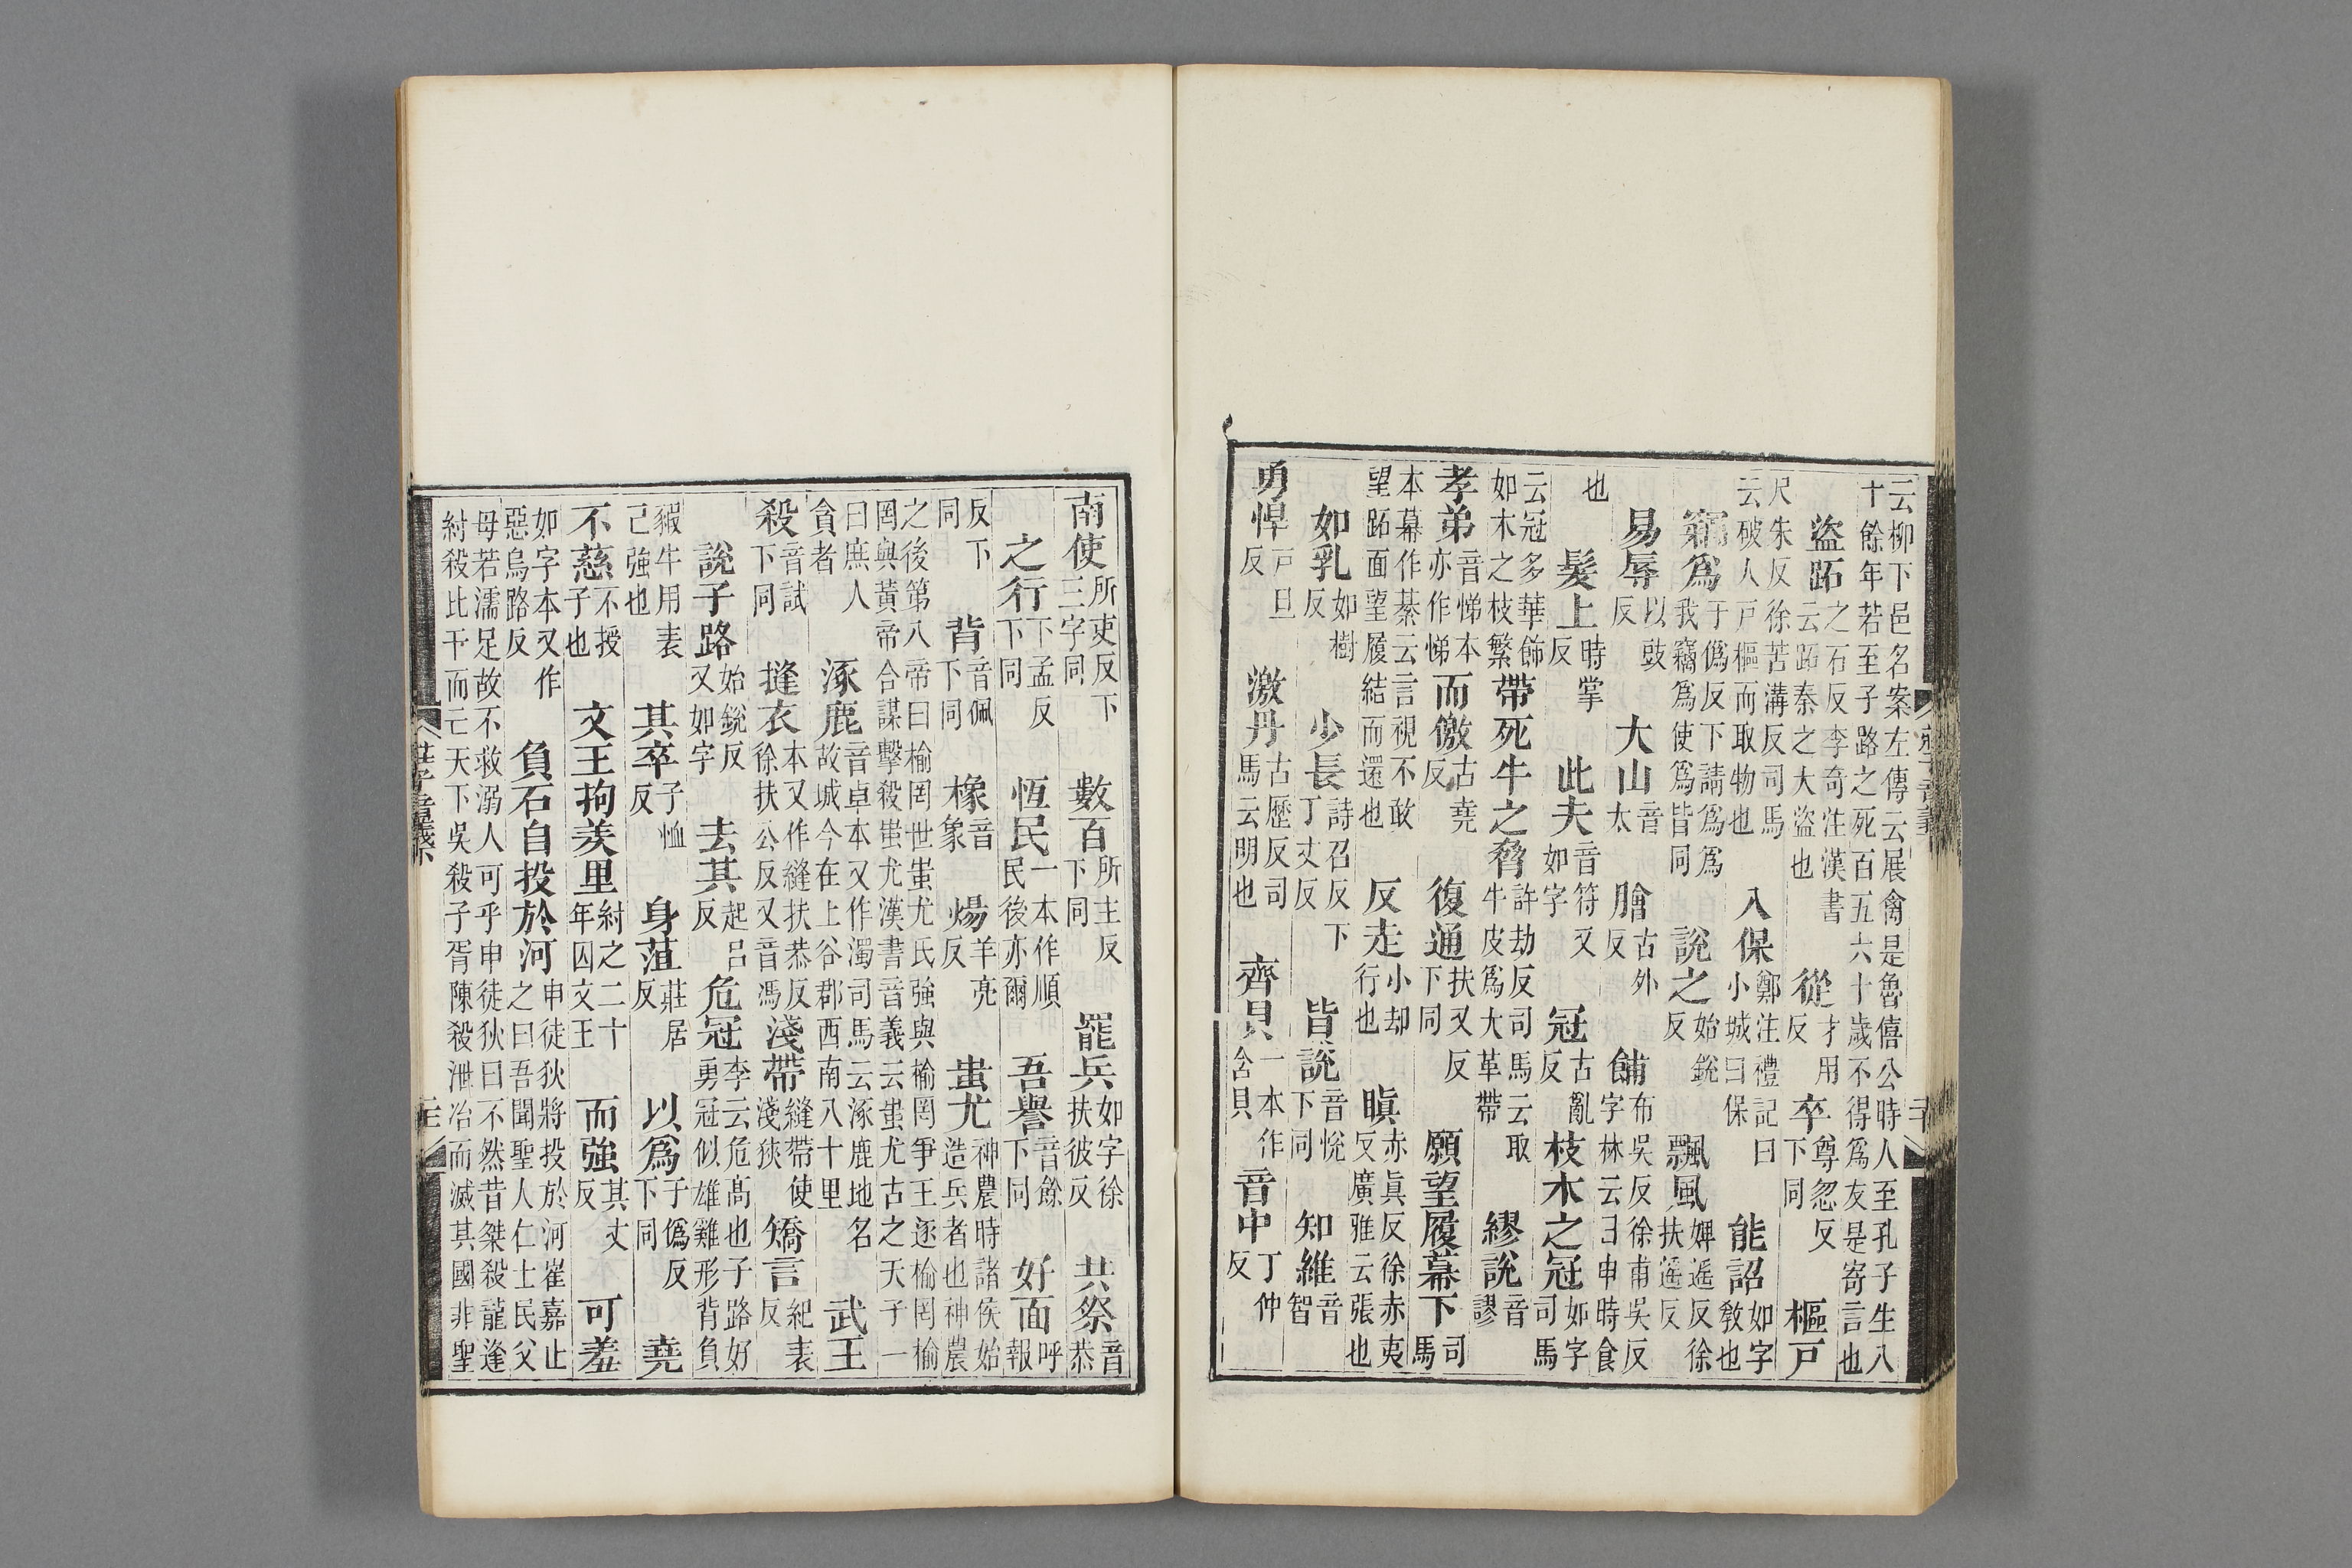 云柳下邑名案左傳云展禽是魯僖公時人至孔子生八十餘年若至子路之死百五六十歲不得爲友是寄言也
盜跖之石反李奇注漢書云跖秦之大盜也 從才用反 卒尊忽反下同 樞戸
尺朱反徐苦溝反司馬云破人戸樞而取物也 入保鄭注禮記曰小城曰保 能詔如字教也
竊爲于僞反下請爲爲我竊爲使爲皆同 說之始銳反 飄風婢遥反徐扶遥反
易辱以豉反 大山音太 膾古外反 餔布吳反徐甫吳反字林云日申時食
也 髮上時掌反 此夫音符又如字 冠古亂反 枝木之冠如字司馬
云冠多華飾如木之枝繁 帶死牛之脅許劫反司馬云取牛皮爲大革帶 繆說音謬
孝弟音悌本亦作悌 而儌古堯反 復通扶又反下同 願望履幕下司馬
本幕作綦云言視不敢望跖面望履結而還也 反走小却行也 瞋赤眞反徐赤夷反廣雅云張也
如乳如樹反 少長詩召反下丁丈反 皆說音悅下同 知維音智
勇悍戸旦反 激丹古歷反司馬云明也 齊貝一本作含貝 音中丁仲反
南使所吏反下三字同 數百所主反下同 罷兵如字徐扶彼反 共祭音恭
之行下孟反下同 恆民一本作順民後亦爾 吾譽音餘下同 好面呼報
反下同 背音佩下同 橡音象 煬羊亮反 蚩尤神農時諸侯始造兵者也神農
之後第八帝曰榆罔世蚩尤氏強與榆罔爭王逐榆罔榆罔與黃帝合謀擊殺蚩尤漢書音義云蚩尤古之天子一
曰庶人貪者 涿鹿音卓本又作濁司馬云涿鹿地名故城今在上谷郡西南八十里 武王
殺音試下同 縫衣本又作縫扶恭反徐扶公反又音馮 淺帶縫帶使淺狹 矯言紀表反
說子路始銳反又如字 去其起呂反 危冠李云危髙也子路好勇冠似雄雞形背負
豭牛用表己強也 其卒子恤反 身菹莊居反 以爲于僞反下同 堯
不慈不授子也 文王拘羑里紂之二十年囚文王 而強其丈反 可羞
如字本又作惡烏路反 負石自投於河申徒狄將投於河崔嘉止之曰吾聞聖人仁士民父
母若濡足故不救溺人可乎申徒狄曰不然昔桀殺龍逢紂殺比干而亡天下吳殺子胥陳殺泄冶而滅其國非聖
莊子音義下